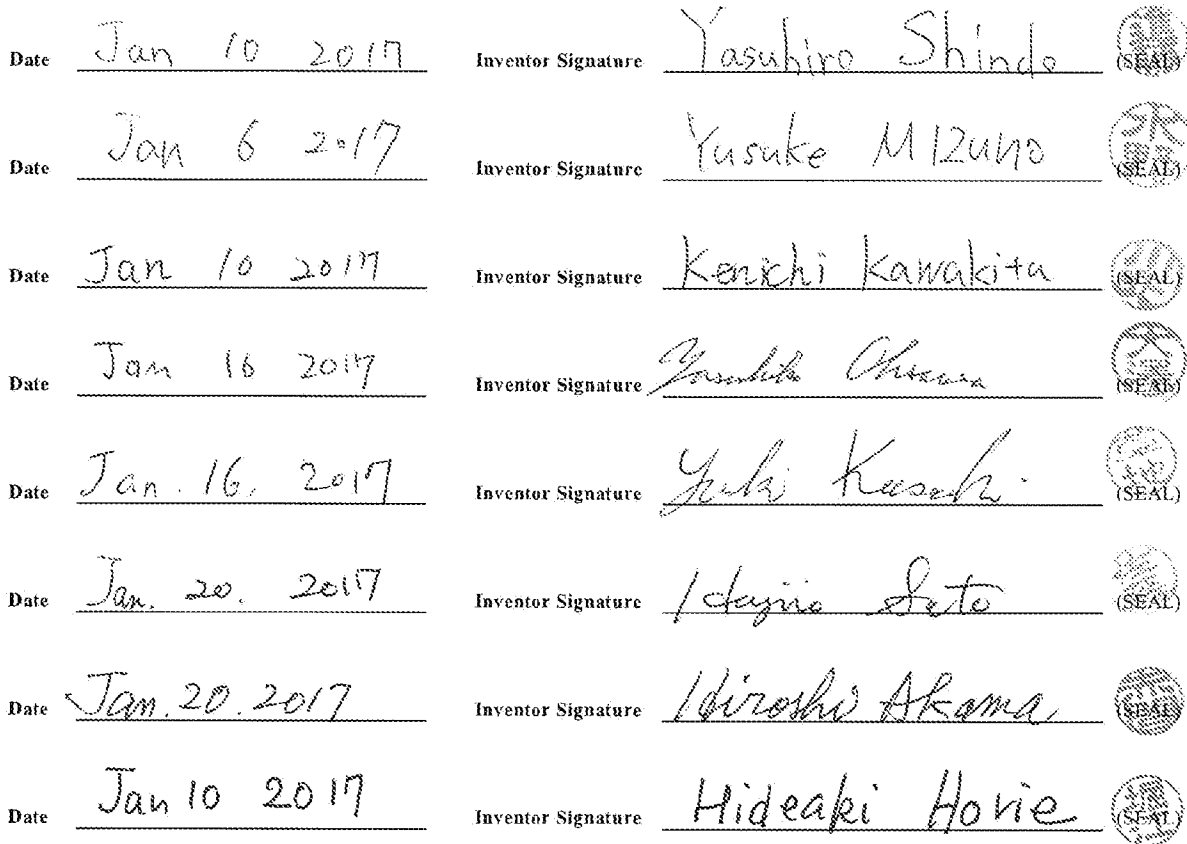 Date Jan 10 2017 Inventor Signature Yasuhiro Shindo (SEAL)
Date Jan 6 2017 Inventor Signature Yusuke MIZUNO 水野 (SEAL)
Date Jan 10 2017 Inventor Signature Kenichi Kawakita (SEAL)
Date Jan 16 2017 Inventor Signature Yasuhiko Ohsawa 大澤 (SEAL)
Date Jan. 16, 2017 Inventor Signature Yuki Kusachi (SEAL)
Date Jan. 20. 2017 Inventor Signature Hajime Sato (SEAL)
Date Jan. 20. 2017 Inventor Signature Hiroshi Akama (SEAL)
Date Jan 10 2017 Inventor Signature Hideaki Horie 堀江 (SEAL)